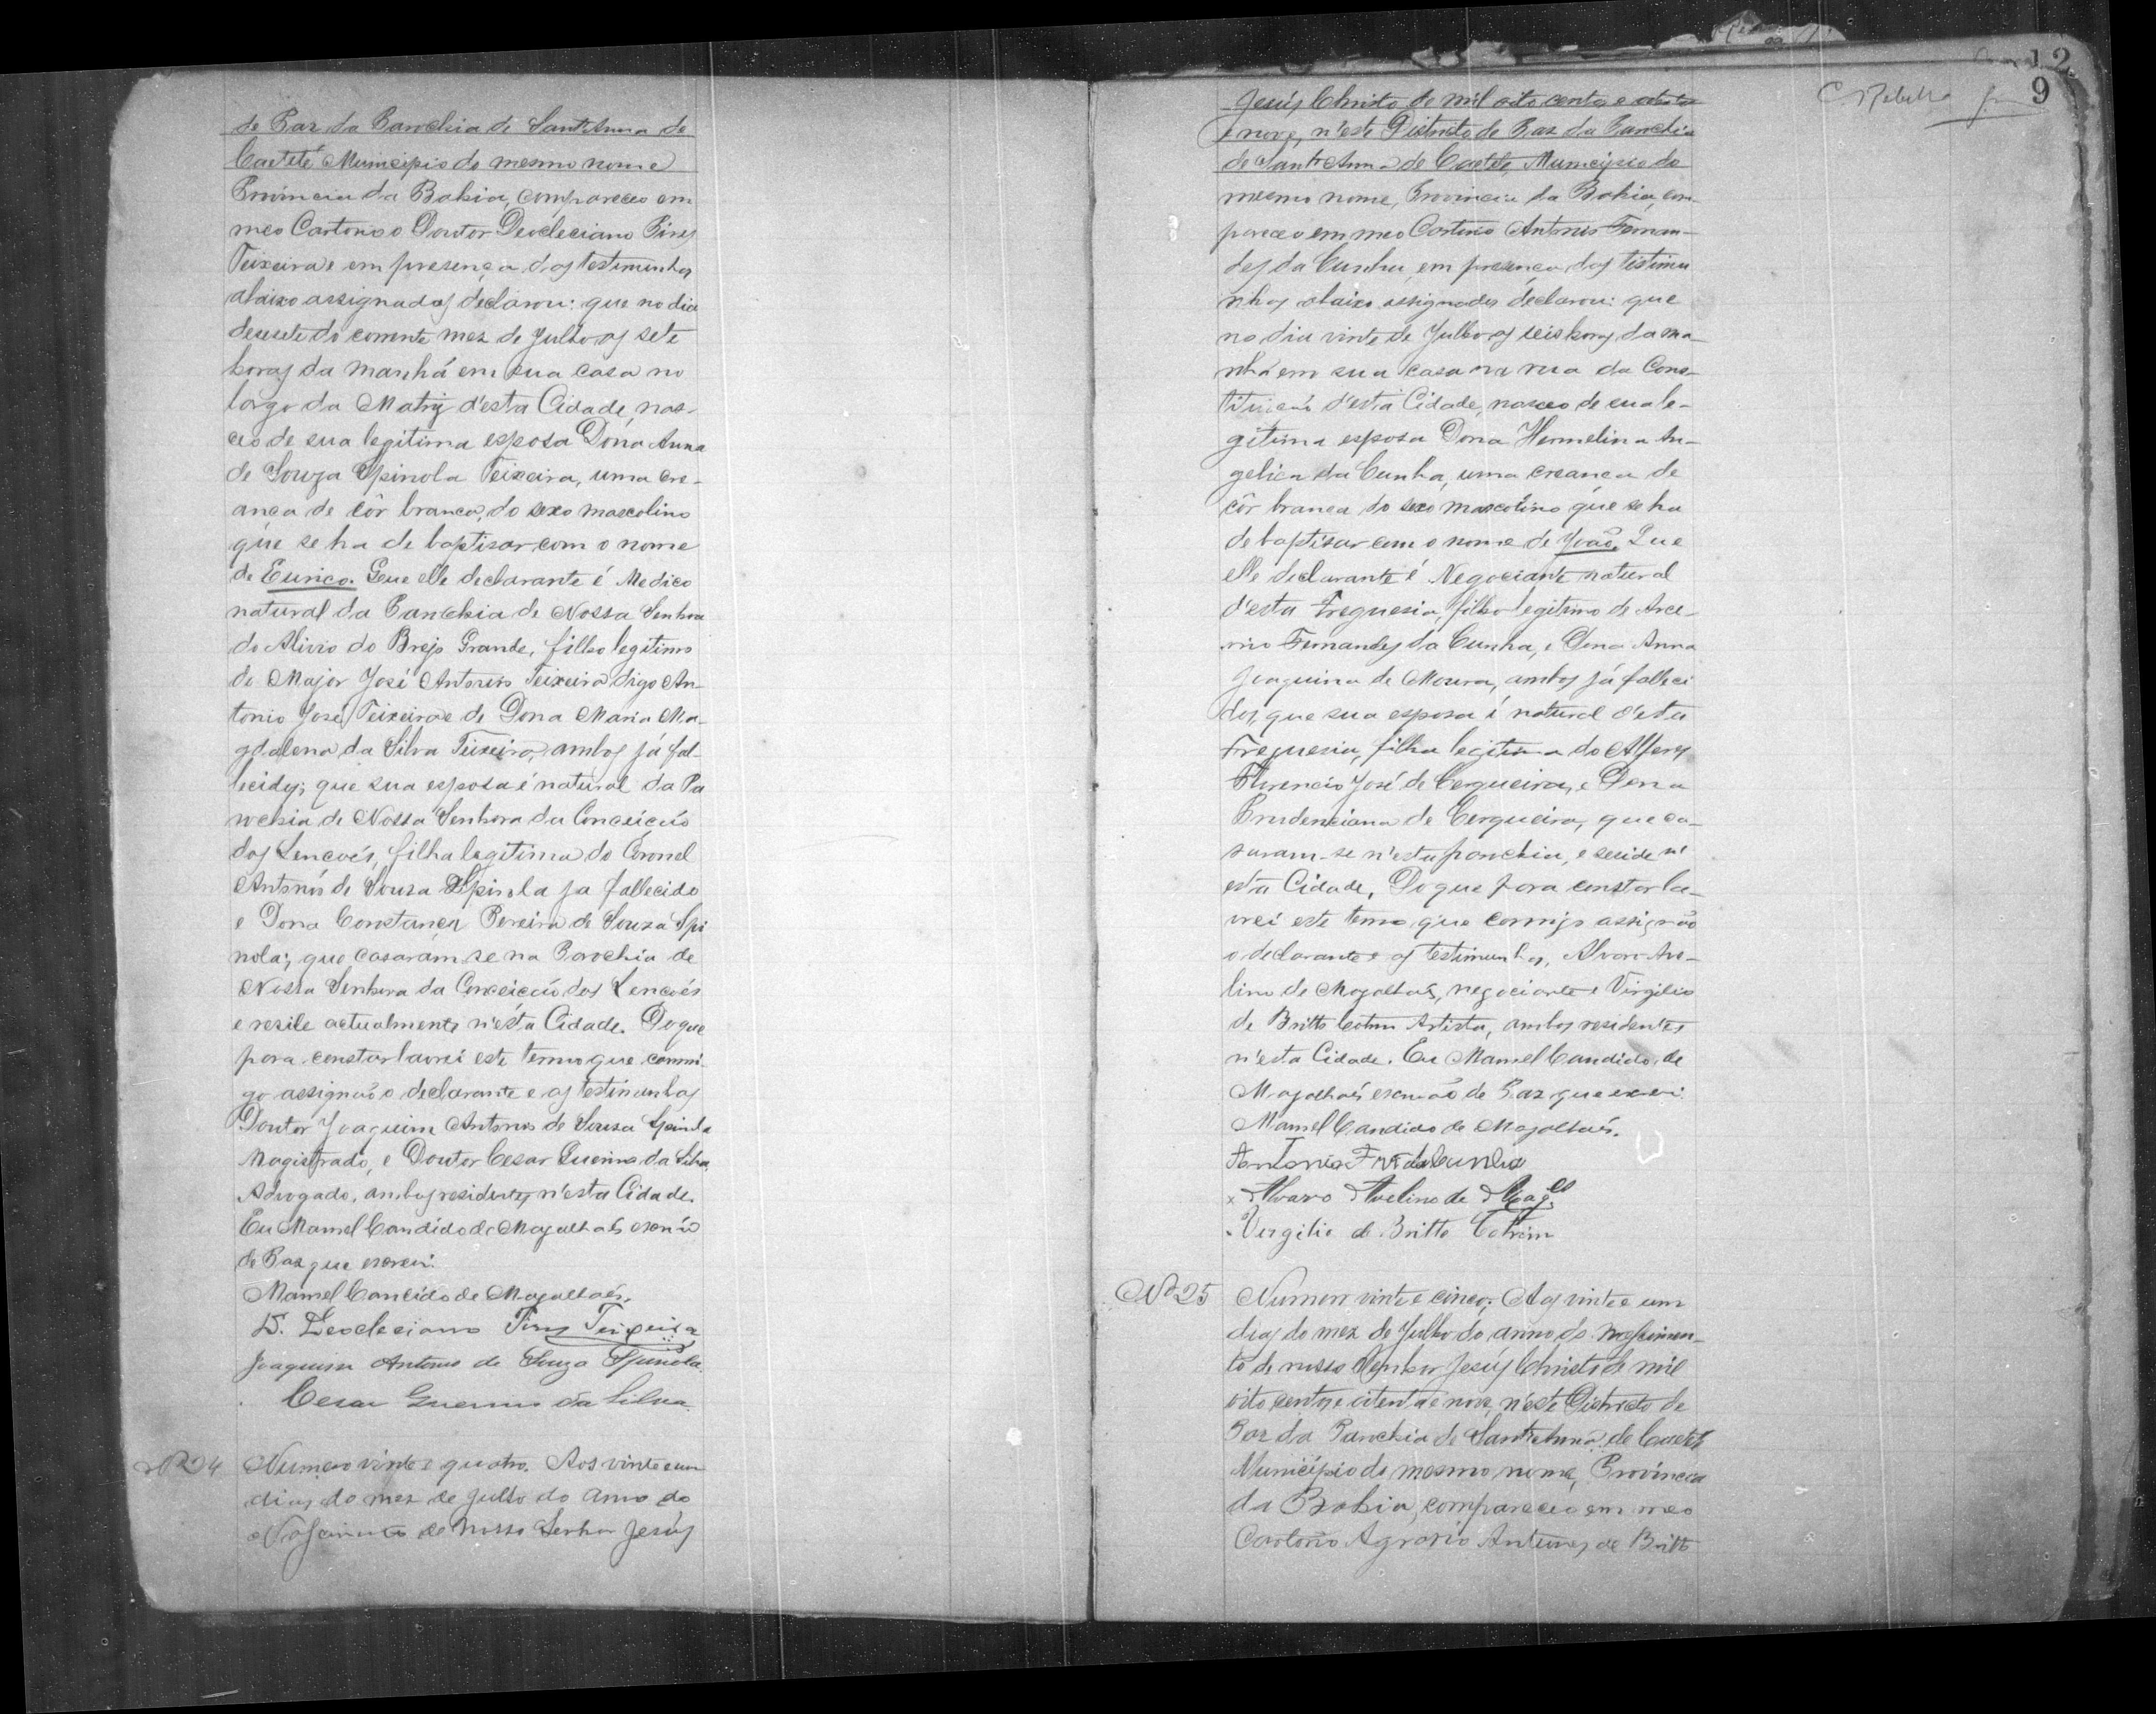 de Paz da Parochia de Sant'Anna de
Caeteté Municipio do mesmo nome
Provincia da Bahia, compareceo em
meo Cartorio o Doutor Deocleciano Pires
Teixeira e em presença das testimunhas
abaixo assignadas declarou: que no dia
desesete do corrente mez de Julho as sete
horas da manhá em sua casa no
largo da Matriz d'esta Cidade, nas-
ceo de sua legitima esposa Dona Anna
de Souza Spinola Teixeira, uma cre-
ança de côr branca, do sexo mascolino
que se ha de baptisar com o nome
de Eurico. Que elle declarante é Medico
natural da Parochia de Nossa Senhora
do Alivio do Brejo Grande, filho legitimo
do Major José Antonio Teixeira digo An-
tonio José Teixeira e de Dona Maria Ma-
gdalena da Silva Teixeira, ambos já fal-
lecidos; que sua esposa é natural da Pa
rochia de Nossa Senhora da Conceição
dos Lençoes, filha legitima do Coronel
Antonio de Souza Spinola ja fallecido
e Dona Constança Pereira de Souza Spi
nola; que casaram se na Parochia de
Nossa Senhora da Conceição dos Lençoés
e reside actualmente n'esta Cidade. Do que
para constar lavrei este termo que commi-
go assignão o declarante e as testimunhas
Doutor Joaquim Antonio de Sousa Spinola
Magistrado, e Doutor Cesar Guerino da Silva,
Advogado, ambos residentes n'esta Cidade.
Eu Manoel Candido de Magalhaés escrivão
de Paz que escrevi.
Manoel Candido de Magalhaés.
D. Deocleciano Pires Teixeira
Joaquim Antonio de Souza Spinola.
Cesar Guerino da Silva.
Nº 24 Numero vinte e quatro. Aos vinte e um
dias do mez de Julho do anno do
Nascimento de Nosso Senhor Jesús
12
9
Jesús Christo de mil oito centos e oitenta
e nove, n'este Districto de Paz da Parochia
de Sant'Anna de Caeteté, Municipio do
mesmo nome, Provincia da Bahia, com-
pareceo em meo Cartorio Antonio Fernan-
des da Cunha, em presença das testimu
nhas abaixo assignadas declarou: que
no dia vinte de Julho as seis horas da ma-
nhá em sua casa na rua da Cons-
tituição d'esta Cidade, nasceo de sua le-
gitima esposa Dona Hermelina An-
gelica da Cunha, uma creança de
côr branca do sexo mascolino que se ha
de baptisar com o nome de João. Que
elle declarante é Negociante natural
d'esta Freguesia, filho legitimo de
Fernandes da Cunha, e Dona Anna
Joaquina de Moura, ambos já falleci
dos, que sua esposa é natural d'esta
Freguesia, filha legitima do Alferes
Florencio José de Cerqueira, e Dona
Prudenciana de Cerqueira, que ca-
saram-se n'esta parochia, e reside n'
esta Cidade, Do que para constar la-
vrei este termo que commigo assignão
o declarante e as testimunhas, Alvaro Ave-
lino de Magalhaés, negociante e Virgilio
de Britto Cotrim Artista, ambos residentes
n'esta Cidade. Eu Manoel Candido de
Magalhaés escrivão de Paz que escrevi.
Manoel Candido de Magalhaés.
Antonio Frz da Cunha
x Alvaro Avelino de Mag.es
x Virgilio de Britto Cotrim
Nº 25 Numero vinte e cinco. Aos vinte e um
dias do mez de Julho do anno do Nascimen-
to de nosso Senhor Jesús Christo de mil
oito centos e oitenta e nove, n'este Districto de
Paz da Parochia de Sant'Anna de Caeteté
Municipio do mesmo nome, Provincia
da Bahia, compareceo em meo
Cartorio Agrario Antunes de Britto